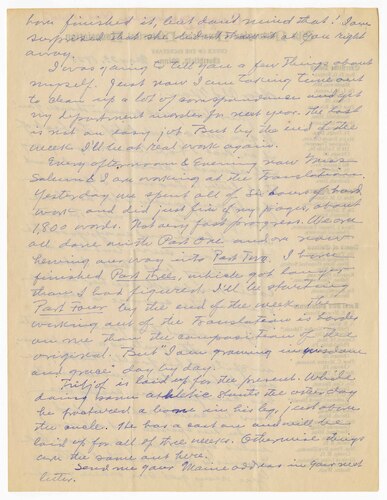 finished it, but never mind that. I am
surprised that she didn't have it at you right
away.
I was going to tell you a few things about
myself. Just now I am taking time out
to clean up a lot of correspondence and get
my department in order for next year. The task
is not an easy job. But by the end of the
week I'll be at real work again.
Every afternoon & Evening now Miss
& I are working at the Translation.
Yesterday we spent all of six hours of hard
work and did just five of my pages, about
1,800 words. Not very fast progress. We are
all done with Part One and are now
hewing our way into Part Two. I have
finished Part Three, which got longer
than I had figured. I'll be starting
Part Four by the end of the week. The
working out of the translation is harder
on me than the composition of the
original. But I am "growing in wisdom
and grace" day by day.
Fritjof is laid up for the present. While
doing some athletic stunts the other day
he produced a bone in his leg, just above
the ankle. He has a cast on and will be
laid up for all of three weeks. Otherwise things
are the same out here.
Send me your Maine address in your next
letter.